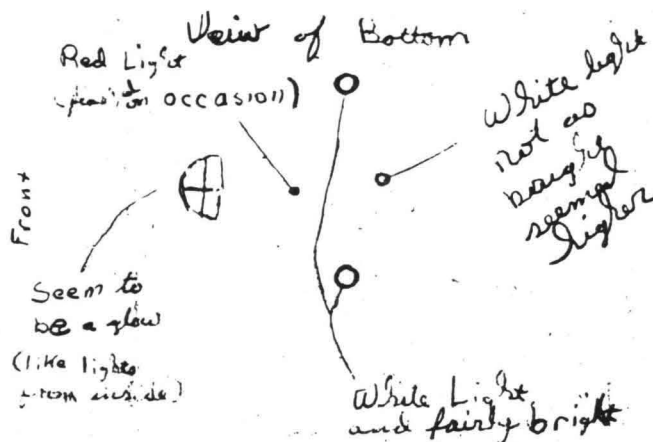 View of Bottom
Red Light
on occasion)
White light
not as
baught
seemed
higher
Front
Seem to
be a glow
(like lights
from inside)
White Light
and fairly bright